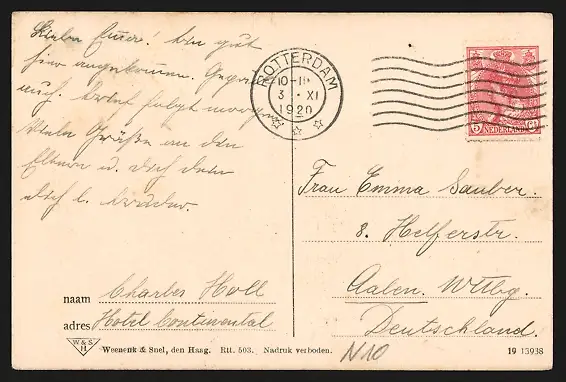 Liebe Emma! bin gut
hier angekommen.
auch. brief folgt morgen
Viele Grüße an den
Eltern u. dich dein
dich l. bruder.
ROTTERDAM
10-11
3 XI
1920
5 NEDERLAND Ct
Frau Emma Sauber.
8. Helferstr.
Aalen. Wttbg.
Deutschland.
naam Charles Holl
adres Hotel Continental
W & S
H
Weenenk & Snel, den Haag. Rtt. 503. Nadruk verboden.
N10
19 13938